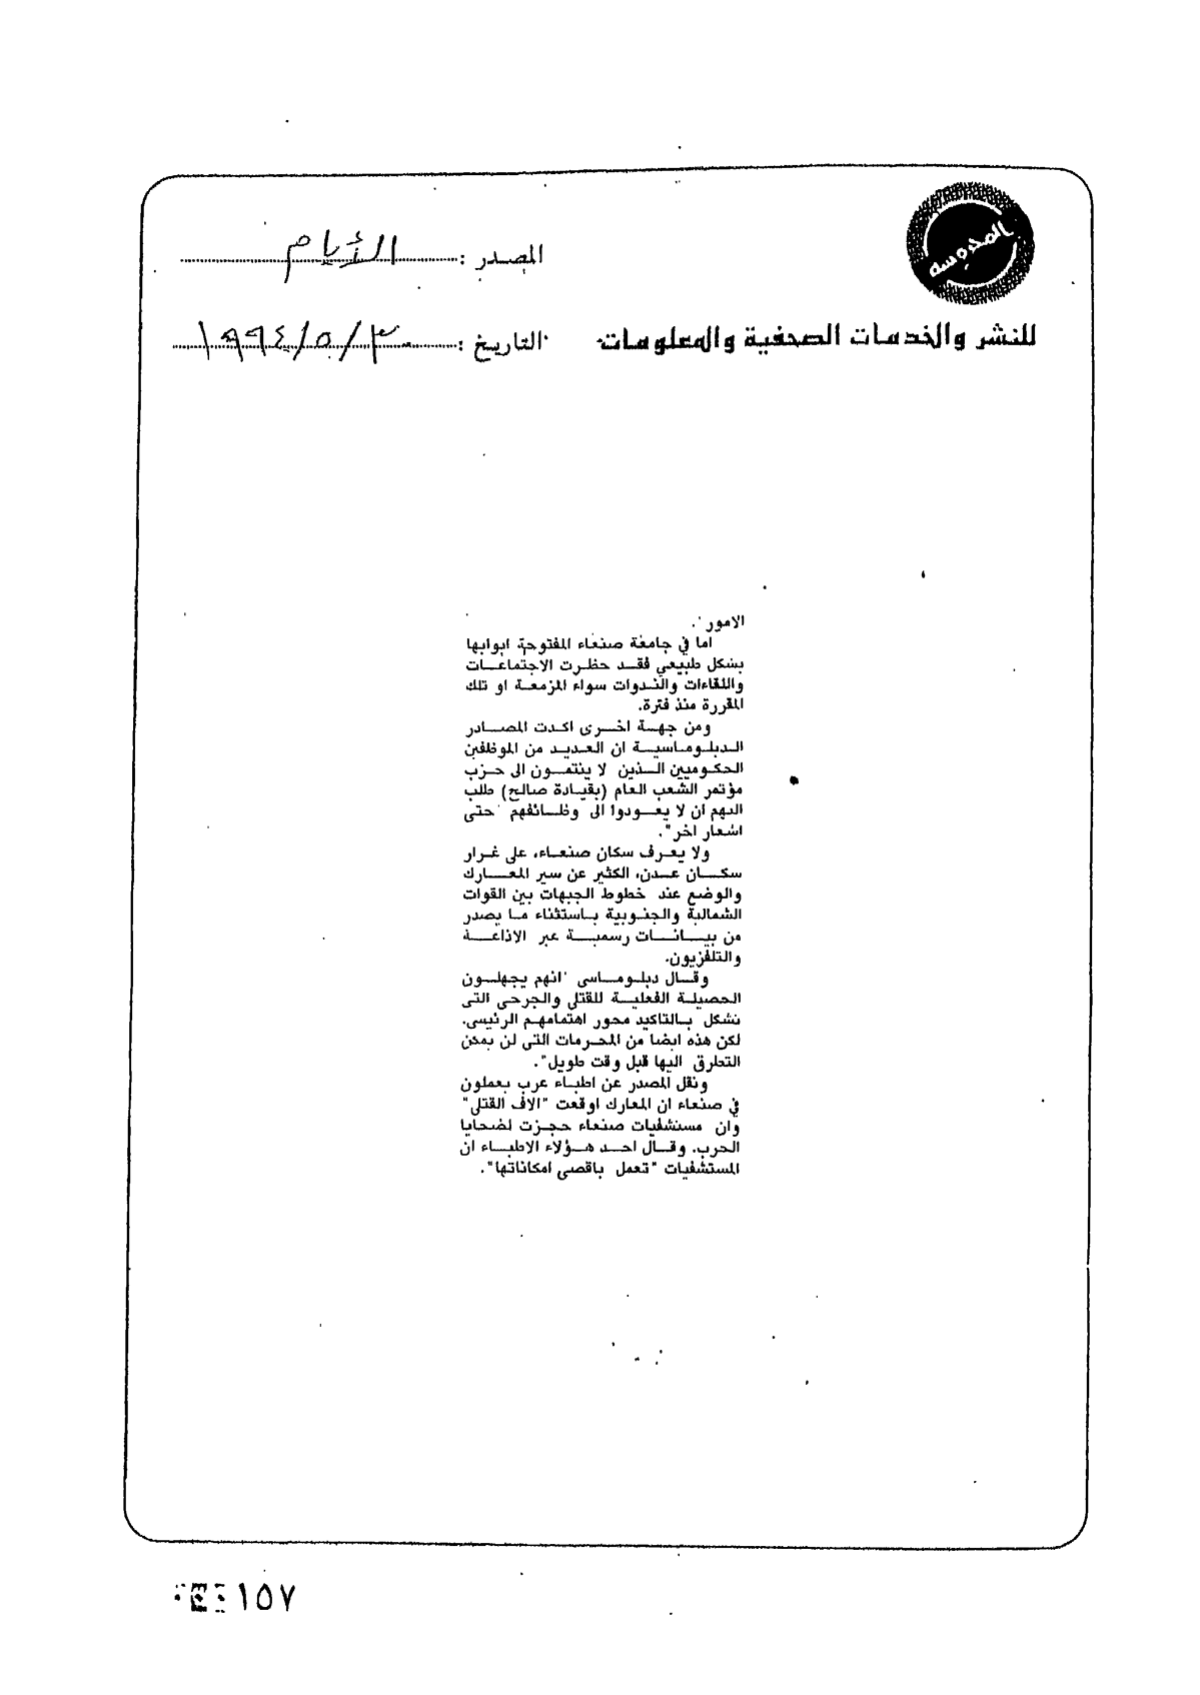 المحروسه
المصدر : الأيام
للنشر والخدمات الصحفية والمعلومات
التاريخ : ٣٠/٥/١٩٩٤
الامور".
اما في جامعة صنعاء المفتوحة ابوابها
بشكل طبيعي فقد حظرت الاجتماعات
واللقاءات والندوات سواء المزمعة او تلك
المقررة منذ فترة.
ومن جهة اخرى اكدت المصادر
الدبلوماسية ان العديد من الموظفين
الحكوميين الذين لا ينتمون الى حزب
مؤتمر الشعب العام (بقيادة صالح) طلب
اليهم ان لا يعودوا الى وظائفهم "حتى
اشعار اخر".
ولا يعرف سكان صنعاء، على غرار
سكان عدن، الكثير عن سير المعارك
والوضع عند خطوط الجبهات بين القوات
الشمالية والجنوبية باستثناء ما يصدر
من بيانات رسمية عبر الاذاعة
والتلفزيون.
وقال دبلوماسي "انهم يجهلون
الحصيلة الفعلية للقتلى والجرحى التي
تشكل بالتاكيد محور اهتمامهم الرئيسي.
لكن هذه ايضا من المحرمات التي لن يمكن
التطرق اليها قبل وقت طويل".
ونقل المصدر عن اطباء عرب يعملون
في صنعاء ان المعارك اوقعت "الاف القتلى"
وان مستشفيات صنعاء حجزت لضحايا
الحرب. وقال احد هؤلاء الاطباء ان
المستشفيات "تعمل باقصى امكاناتها".
١٥٧